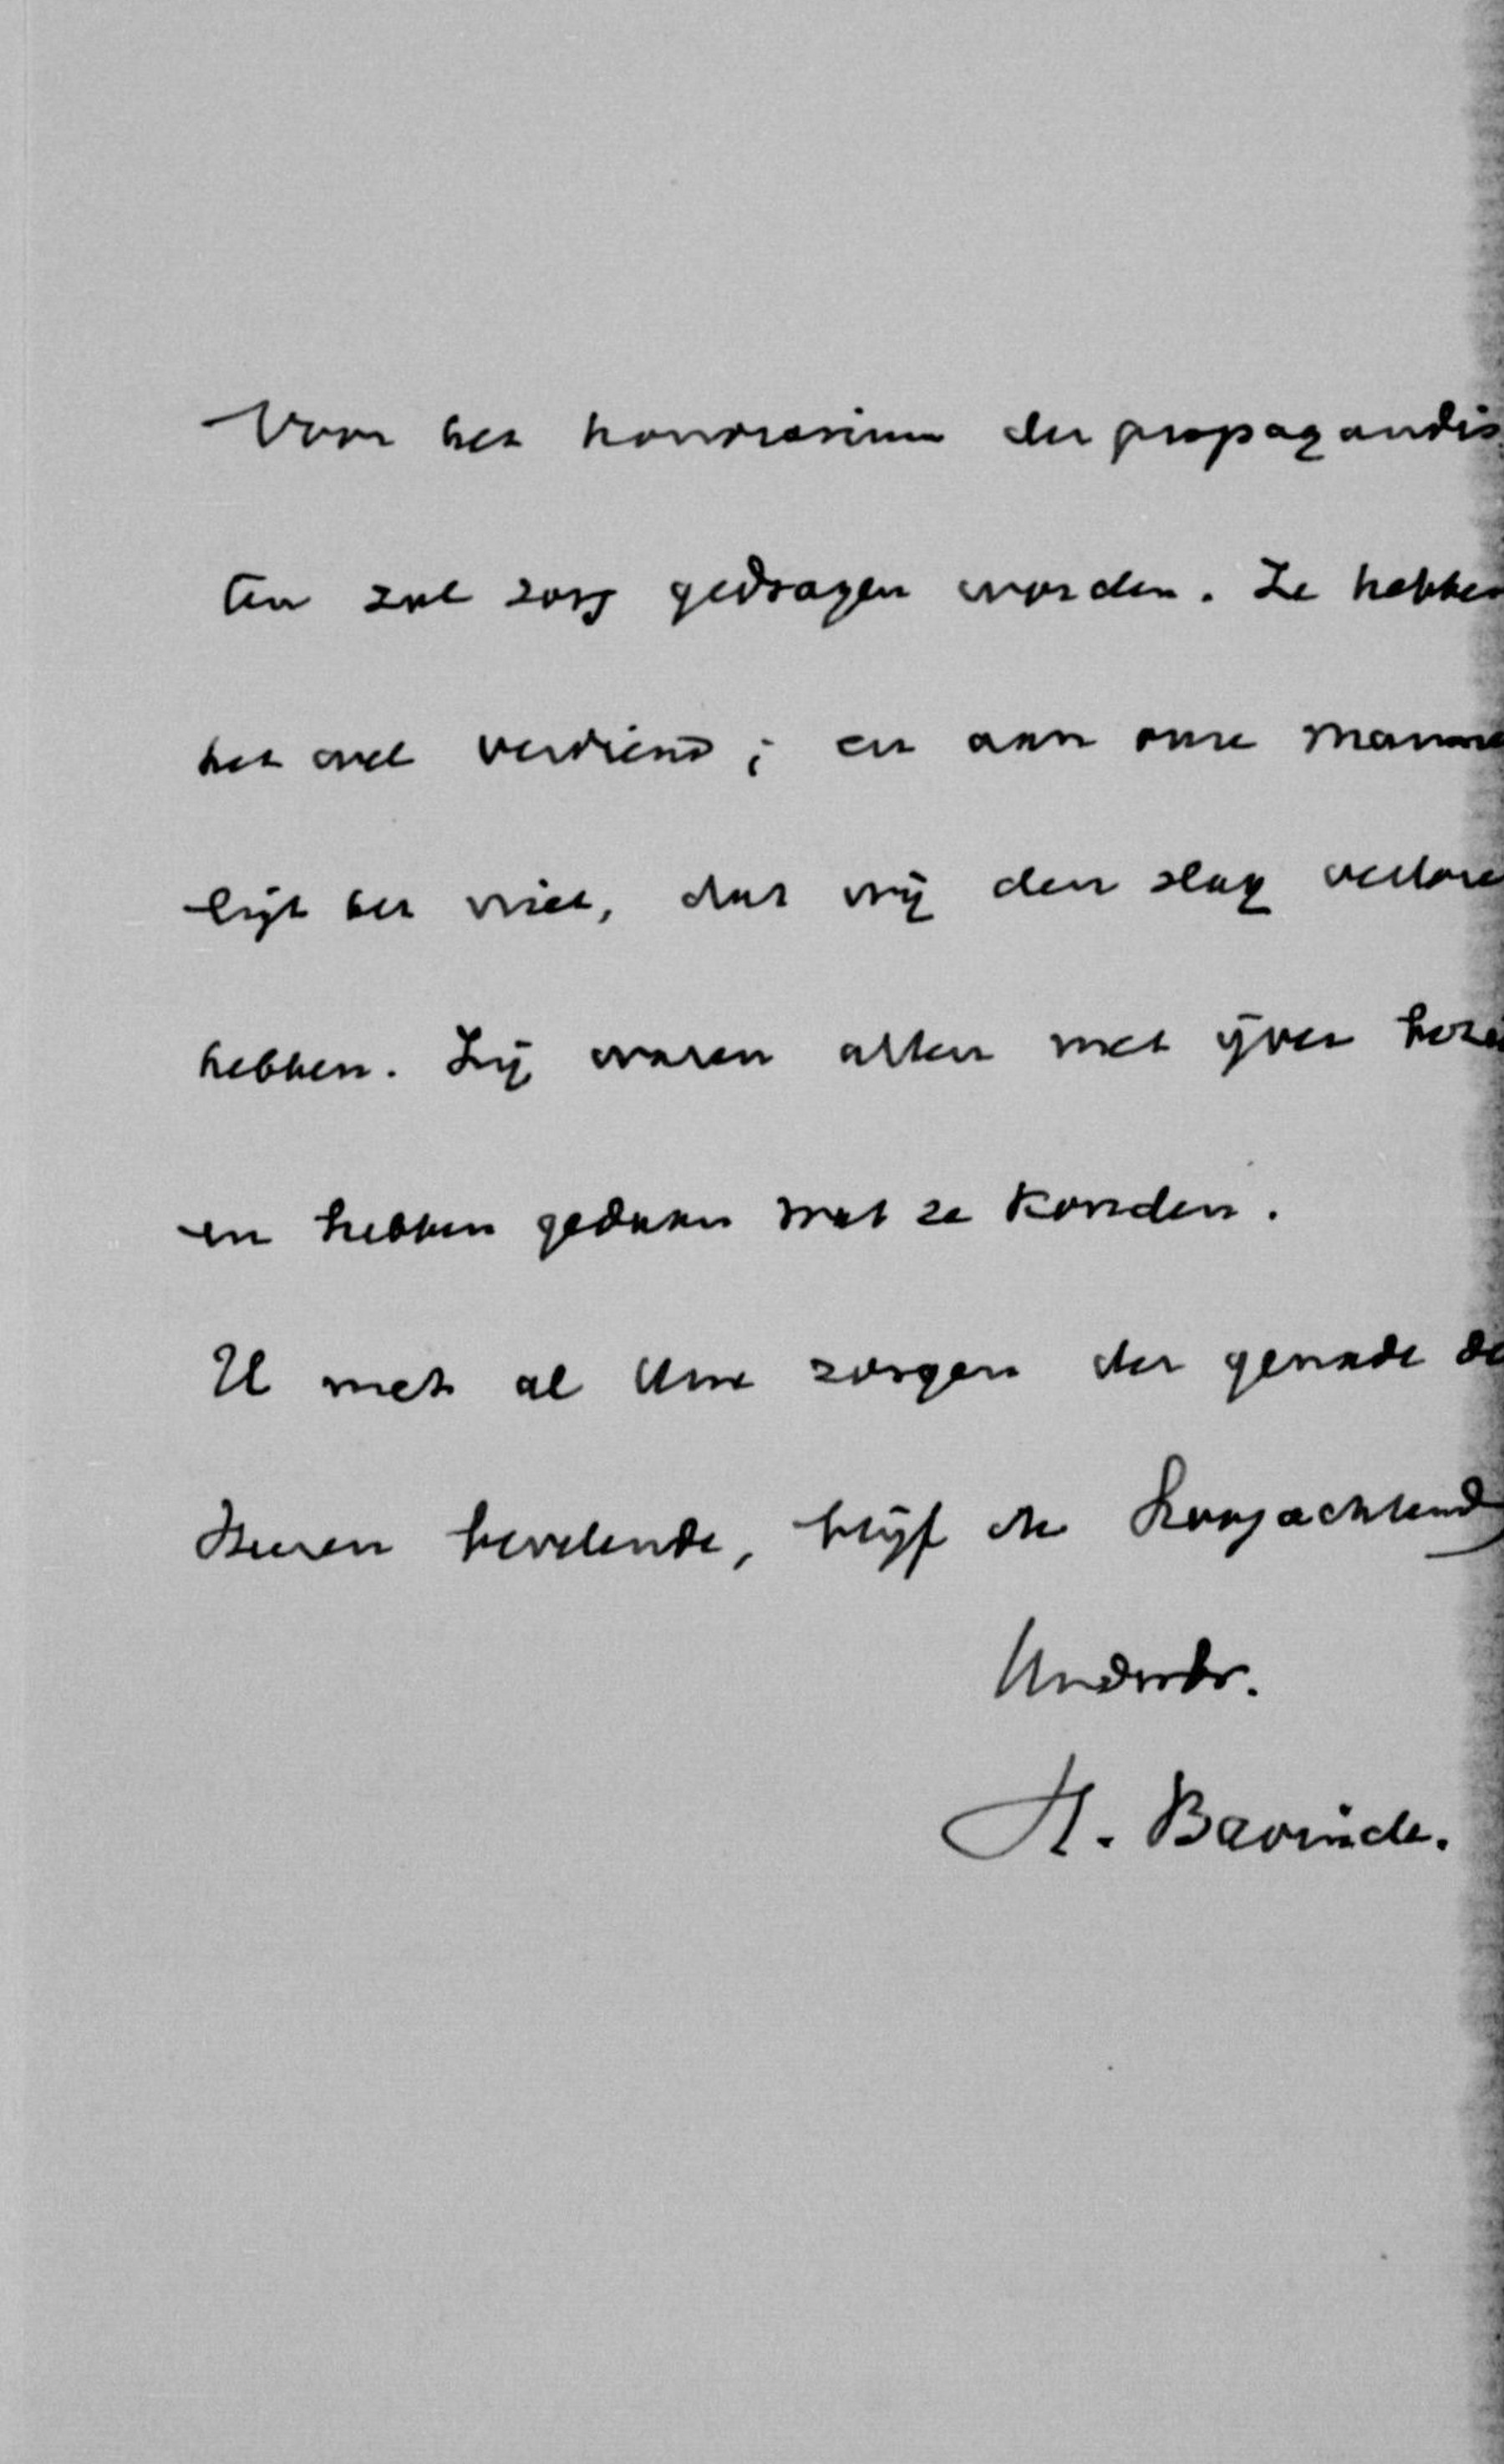 Voor het honorarium der propagandis
ten zal zorg gedragen worden. Ze hebben
het wel verdiend; en aan onze manne
ligt het niet, dat wij den slag verlore
hebben. Zij waren allen met ijver beze
en hebben gedaan wat ze konden.
U met al Uwe zorgen der genade de
Heeren bevelende, blijf ik Hoogachtend
Uw dw dr.
H. Bavinck.